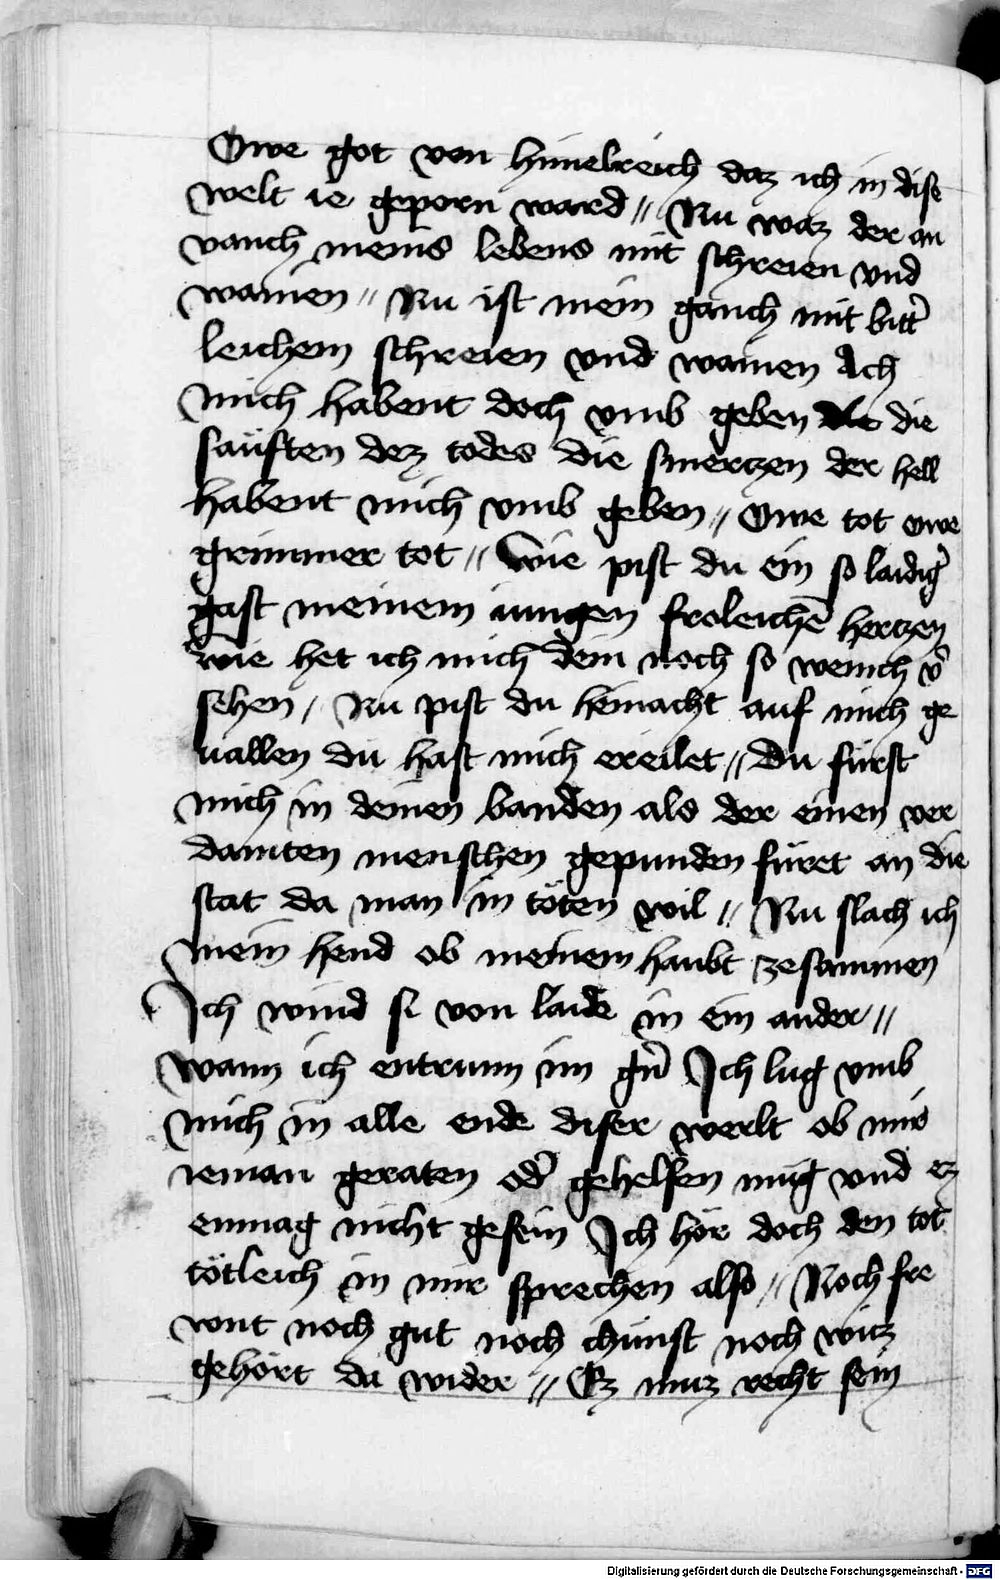 Owe got von himelreich daz ich in dise
welt ie geporn ward // Nu waz der an
vanch meins lebens mit schreien vnd
wainen // Nu ist mein ganch mit bitt̉
leichem schreien vnd wainen Ach
mich habent doch vmb geben die
säuften dez todes die smerczen der hell
habent mich vmb geben // Owe tot owe
grimmer tot // Wie pist du ein so laidig̉
gast meinem iungen froleichē herczen
wie het ich mich dein noch so wenich v̉
sehen / Nu pist du heinacht auf mich ge
uallen du hast mich ereilet // Du fürst
mich in deinen banden als der einen ver
damten menschen gepunden füret an die
stat da man in töten wil // Nu slach ich
mein hend ob meinem haubt zesammen
Ich wind si von laide in ein ander //
wann ich entrunn im g̉n Ich lug vmb
mich in alle ende diser werlt ob mir
ieman geraten od̉ gehelfen mug vnd ez
enmag nicht gesein Ich hör doch den tot
tötleich in mir sprechen also // Noch fre
wnt noch gut noch chunst noch wicz
gehört da wider // Ez muz recht sein
Digitalisierung gefördert durch die Deutsche Forschungsgemeinschaft - DFG